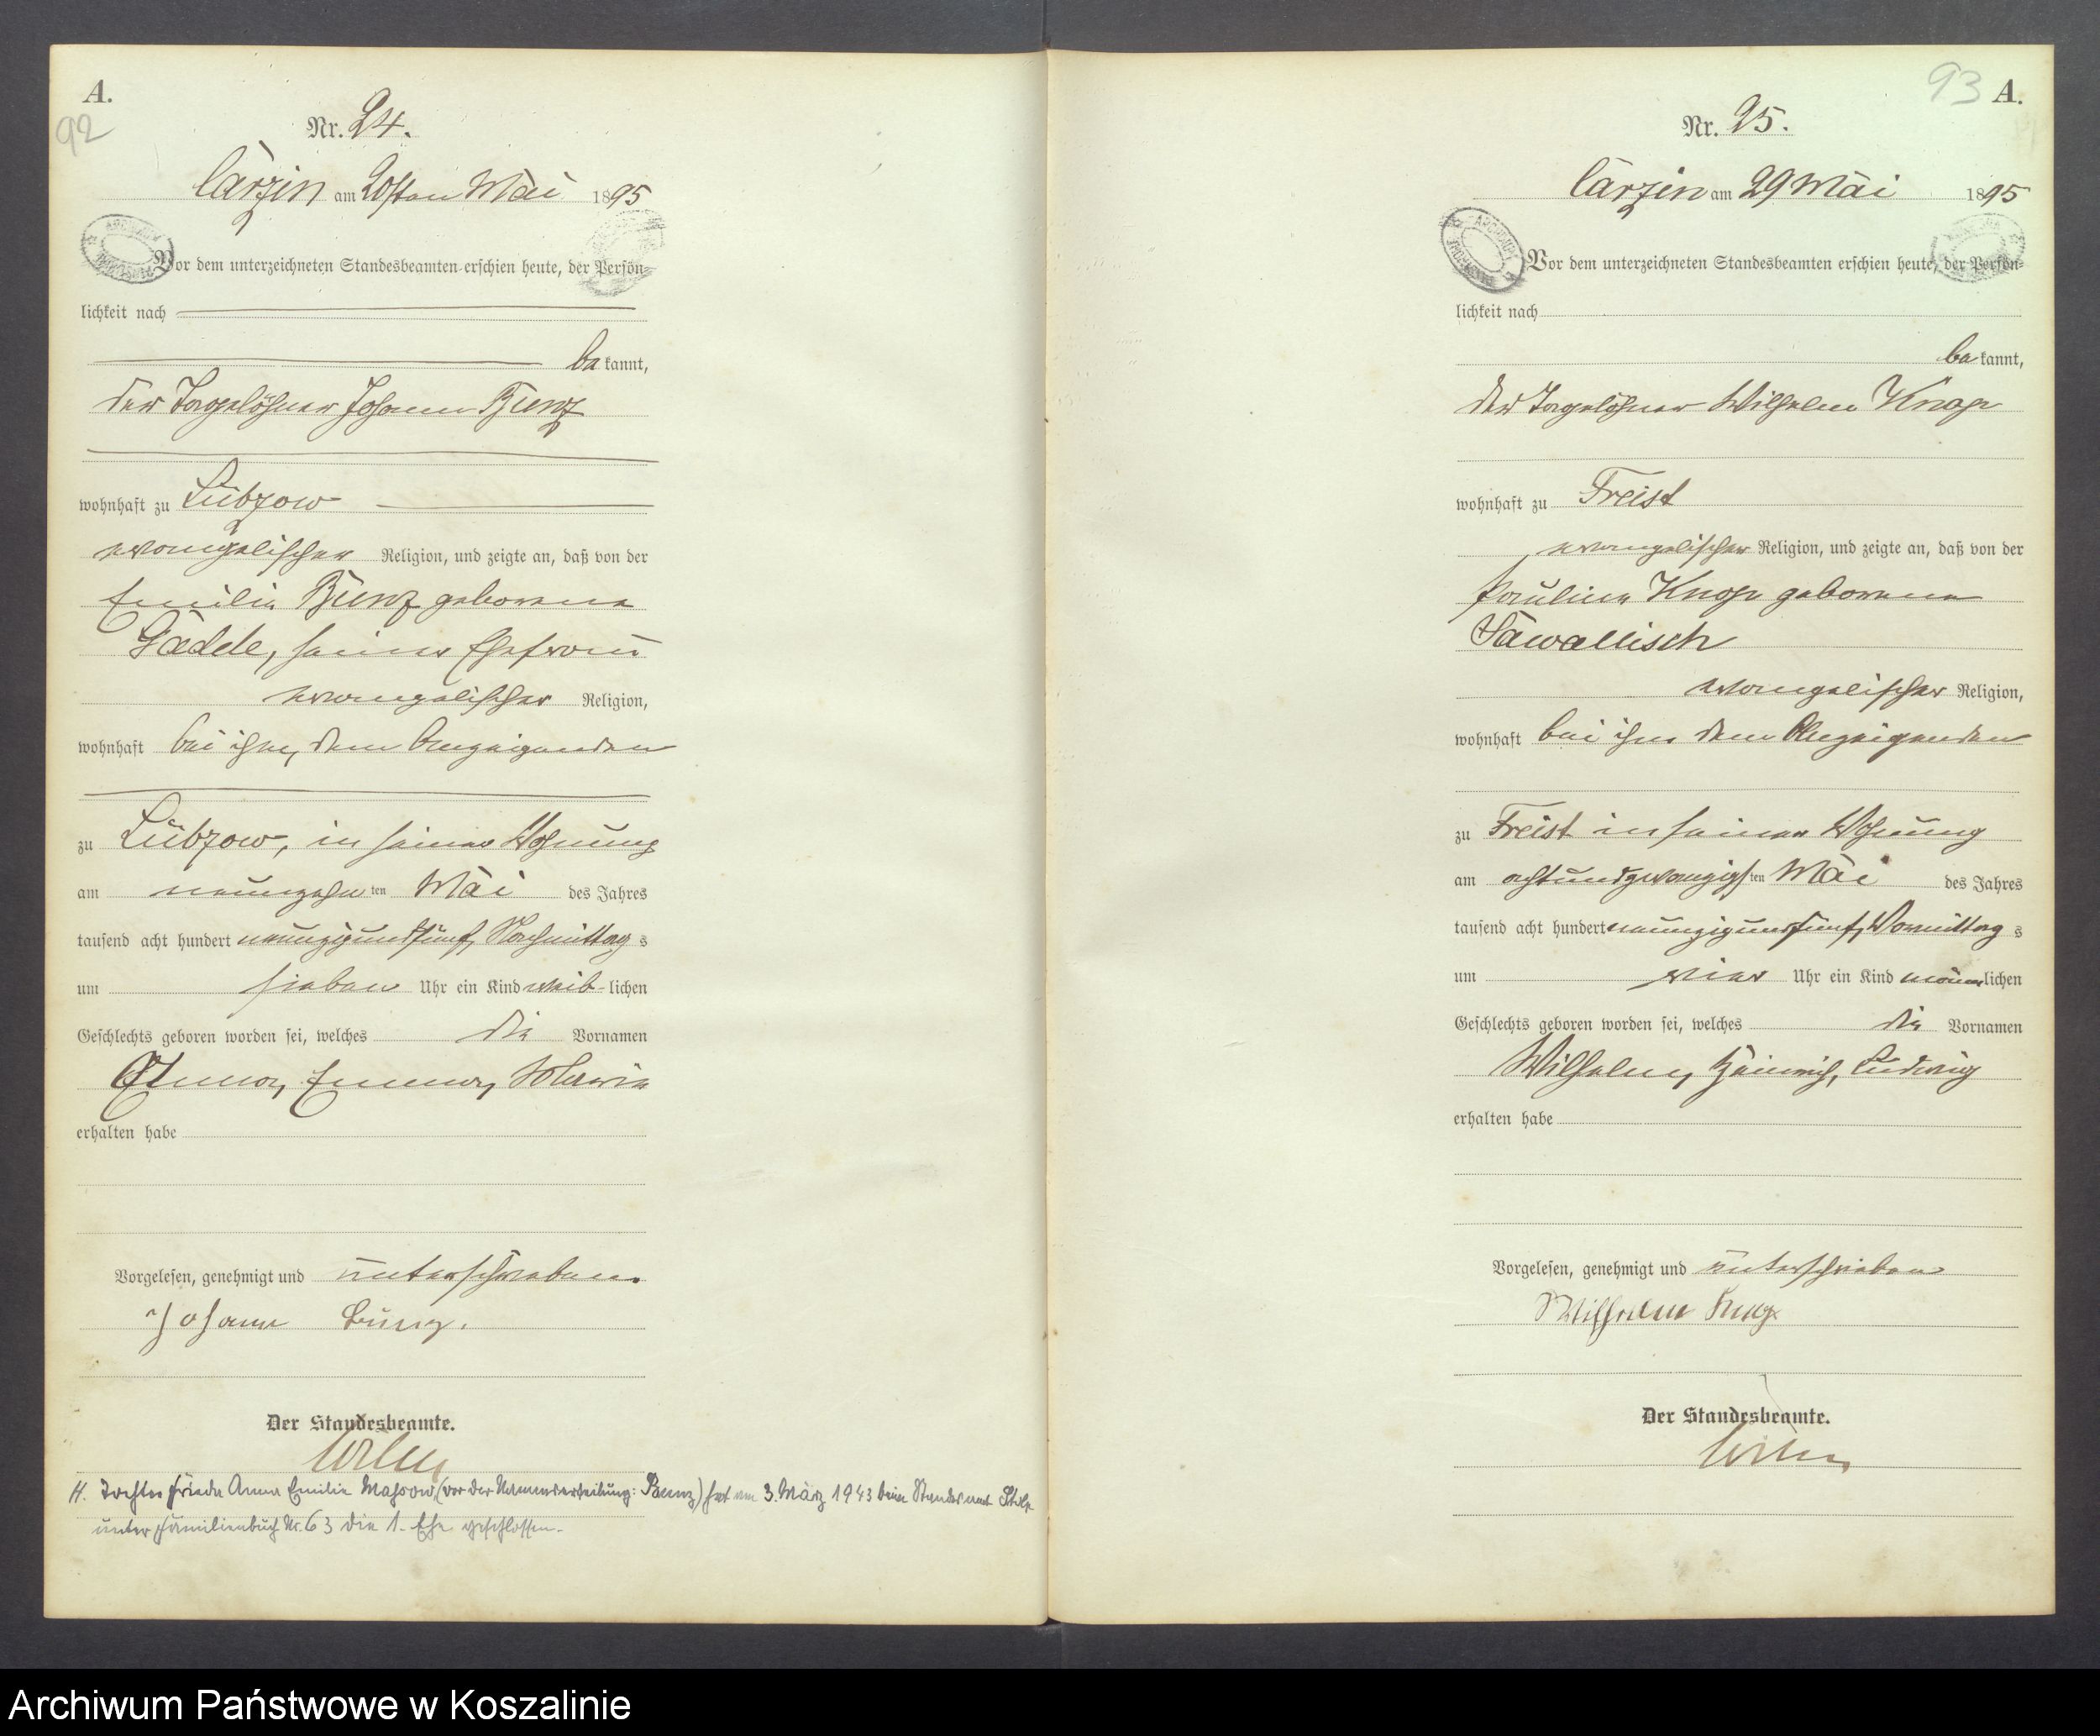 A.
92
Nr. 24.
Carzin am 20sten Mai 1895
Vor dem unterzeichneten Standesbeamten erschien heute, der Persön-
lichkeit nach
be kannt,
der Tagelöhner Johann Bunz
wohnhaft zu Lübzow
evangelischer Religion, und zeigte an, daß von der
Emilie Bunz geborene
Gædde, seiner Ehefrau
evangelischer Religion,
wohnhaft bei ihm, dem Anzeigenden
zu Lübzow, in seiner Wohnung
am neunzehn ten Mai des Jahres
tausend acht hundert neunzigundfünf, Nachmittag s
um sieben Uhr ein Kind weib-lichen
Geschlechts geboren worden sei, welches die Vornamen
Anna, Emma, Marie
erhalten habe
Vorgelesen, genehmigt und unterschrieben.
Johann Bunz.
Der Standesbeamte.
H. Tochter Frieda Anna Emilie Massow (vor der Namenserteilung: Bunz) hat am 3. März 1943 beim Standesamt Stolp
unter Familienbuch Nr. 63 die 1. Ehe geschlossen.
93
A.
Nr. 25.
Carzin am 29 Mai 1895
Vor dem unterzeichneten Standesbeamten erschien heute, der Persön-
lichkeit nach
be kannt,
der Tagelöhner Wilhelm Knop
wohnhaft zu Freist
evangelischer Religion, und zeigte an, daß von der
Pauline Knop geborene
Sawallisch
evangelischer Religion,
wohnhaft bei ihm dem Anzeigenden
zu Freist in seiner Wohnung
am achtundzwanzigs ten Mai des Jahres
tausend acht hundert neunzigundfünf, Vormittag s
um vier Uhr ein Kind männ lichen
Geschlechts geboren worden sei, welches die Vornamen
Wilhelm, Heinrich, Ludwig
erhalten habe
Vorgelesen, genehmigt und unterschrieben
Wilhelm Knop
Der Standesbeamte.
Archiwum Państwowe w Koszalinie